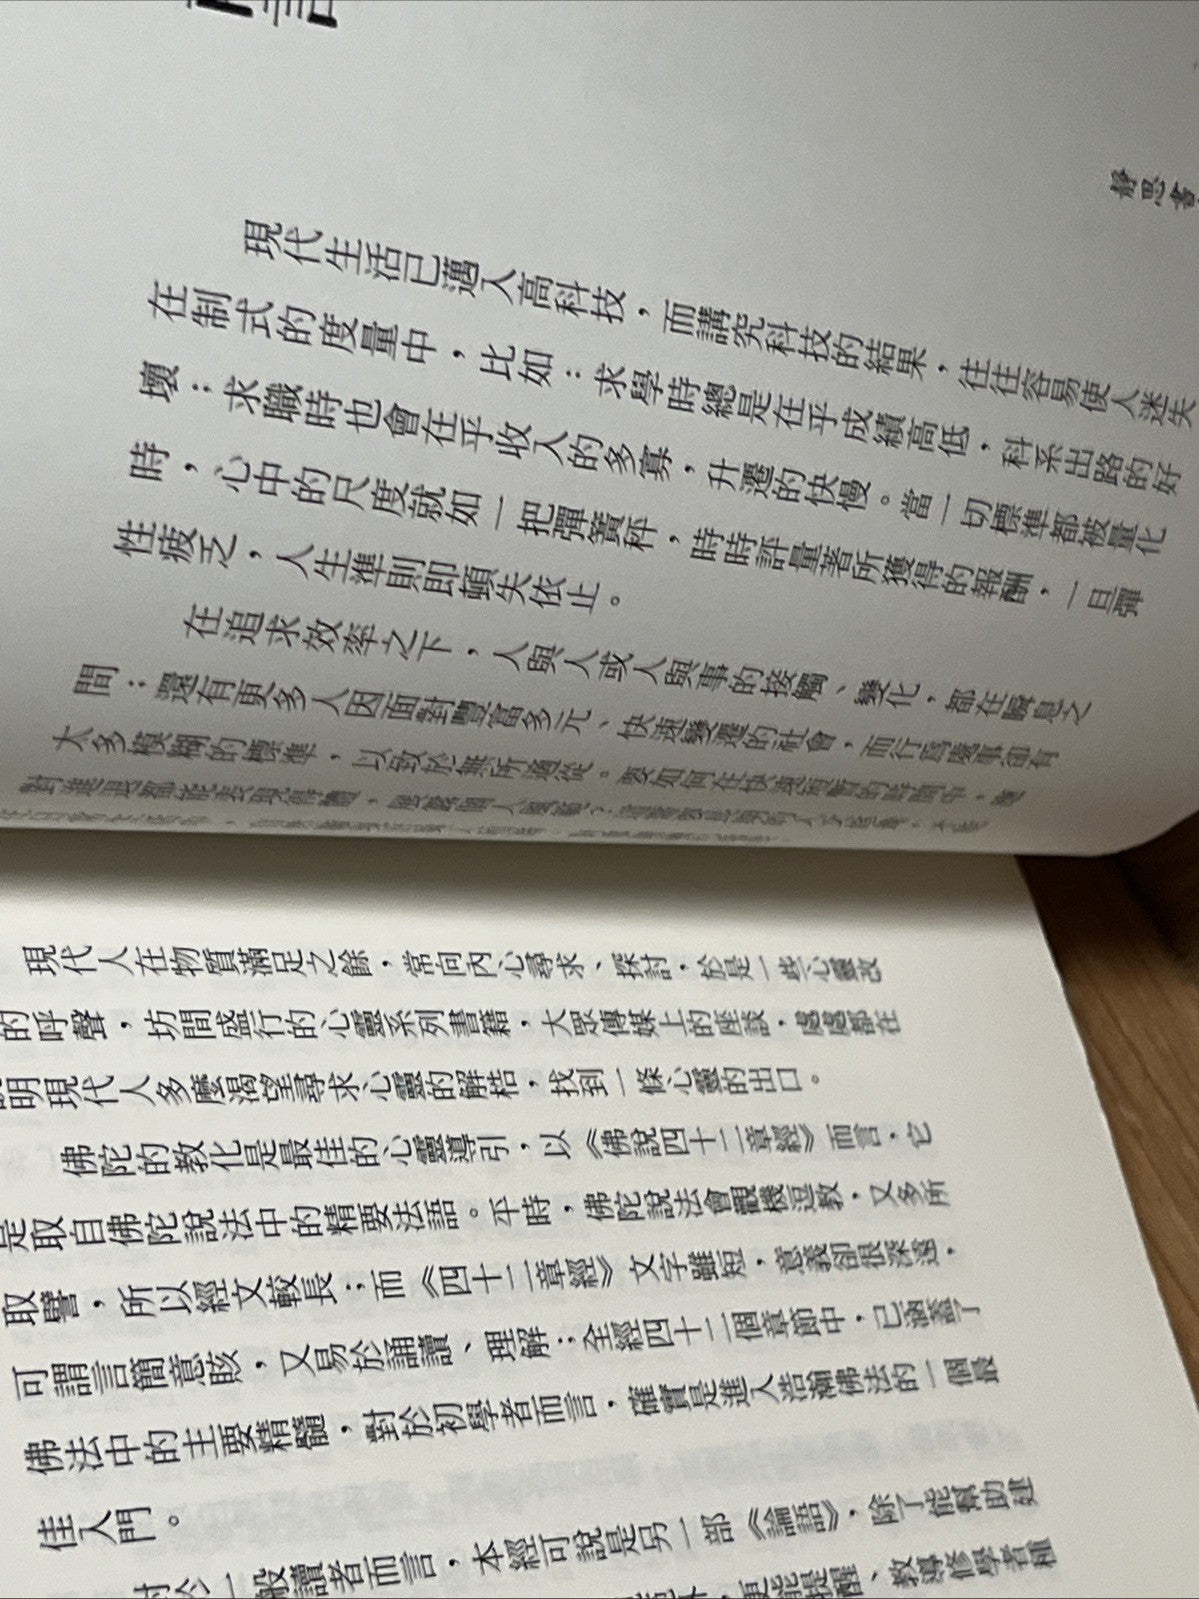 言
靜思書
現代生活已邁入高科技，而講究科技的結果，往往容易使人迷失
在制式的度量中，比如：求學時總是在乎成績高低，科系出路的好
壞；求職時也會在乎收入的多寡，升遷的快慢。當一切標準都被量化
時，心中的尺度就如一把彈簧秤，時時評量著所獲得的報酬，一旦彈
性疲乏，人生準則即頓失依止。
在追求效率之下，人與人或人與事的接觸、變化，都在瞬息之
間；還有更多人因面對豐富多元、快速變遷的社會，而行為處事卻有
太多模糊的標準，以致於無所適從。要如何在快速
現代人在物質滿足之餘，常向內心尋求、探討，於是一些心靈改
的呼聲，坊間盛行的心靈系列書籍，大眾傳媒上的座談，處處都在
明現代人多麼渴望尋求心靈的解桔，找到一條心靈的出口。
佛陀的教化是最佳的心靈導引，以《佛說四十二章經》而言，它
是取自佛陀說法中的精要法語。平時，佛陀說法會觀機逗教，又多所
取譬，所以經文較長；而《四十二章經》文字雖短，意義卻很深遠，
可謂言簡意賅，又易於誦讀、理解；全經四十二個章節中，已涵蓋了
佛法中的主要精髓，對於初學者而言，確實是進入浩瀚佛法的一個最
佳入門。
對於一般讀者而言，本經可說是另一部《論語》，除了能幫助建
更能提醒、教導修學者植